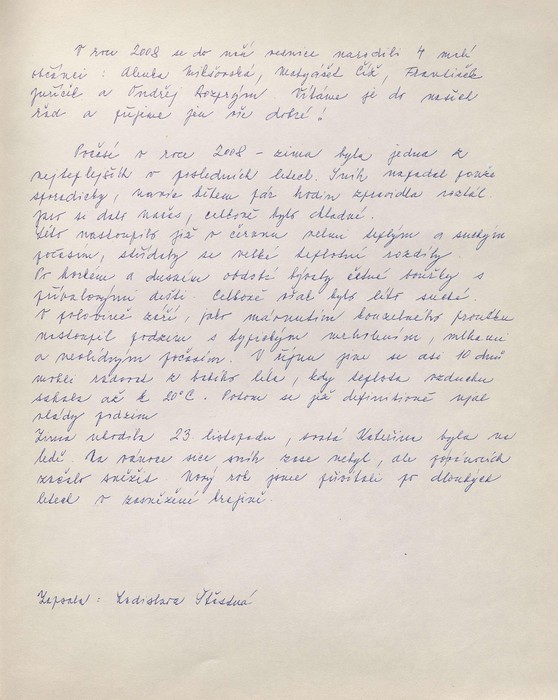 V roce 2008 se do naší vesnice narodili 4 malí
občánci : Alenka Mikšovská, Matyáš Čík, František
Juříček a Ondřej Vítáme je do našich
řad a přejeme jen vše dobré !
Počasí v roce 2008 – zima byla jedna z
nejteplejších v posledních letech. Sníh napadal pouze
sporadicky, navíc během pár hodin zpravidla roztál.
Jaro si dalo načas, celkově bylo chladné.
Léto nastoupilo již v červnu velmi teplým a suchým
počasím, střídaly se velké teplotní rozdíly.
Po horkém a dusném období bývaly četné bouřky s
přívalovými dešti. Celkově však bylo léto suché.
V polovině září, jako mávnutím kouzelného proutku
nastoupil podzim s typickým mrholením, mlhami
a nevlídným počasím. V říjnu jsme se asi 10 dnů
mohli radovat z babího léta, kdy teplota vzduchu
sahala až k 20°C. Potom se již definitivně ujal
vlády podzim
Zima uhodila 23. listopadu, svatá Kateřina byla na
ledě. Na vánoce sice sníh zase nebyl, ale po vánocích
začalo sněžit. Nový rok jsme přivítali po dlouhých
letech v zasněžené krajině.
Zapsala : Ladislava Šťastná